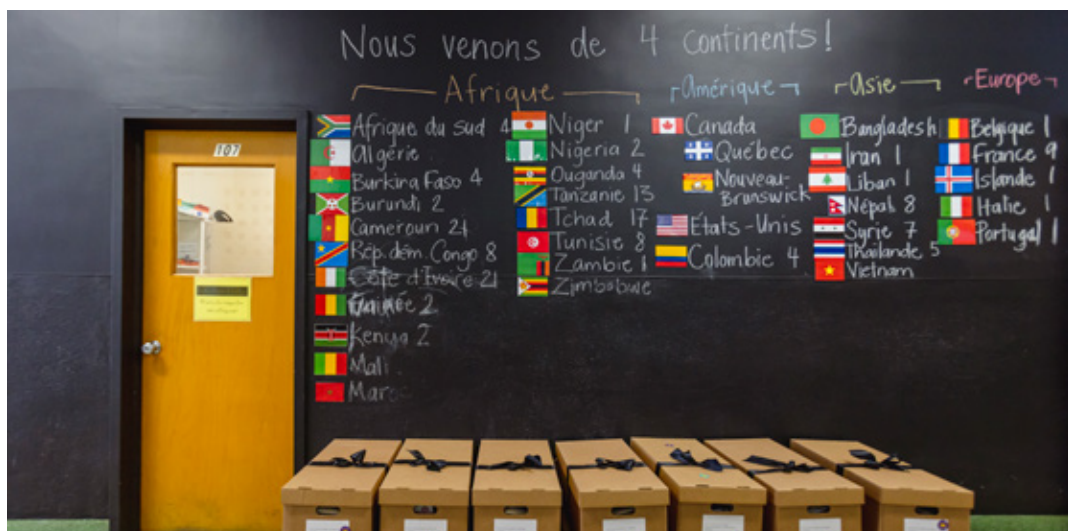 Nous venons de 4 continents!
Afrique
Afrique du sud 4
Algérie
Burkina Faso 4
Burundi 2
Cameroun 21
Rép. dém. Congo 8
Côte d'Ivoire 21
2
Kenya 2
Mali
Maroc
Niger 1
Nigeria 2
Ouganda 4
Tanzanie 13
Tchad 17
Tunisie 8
Zambie 1
Zimbabwe
Amérique
Canada
Québec
Nouveau-
Brunswick
États-Unis
Colombie 4
Asie
Bangladesh
Iran 1
Liban 1
Népal 8
Syrie 7
Thaïlande 5
Vietnam
Europe
Belgique 1
France 9
Islande 1
Italie 1
Portugal 1
107